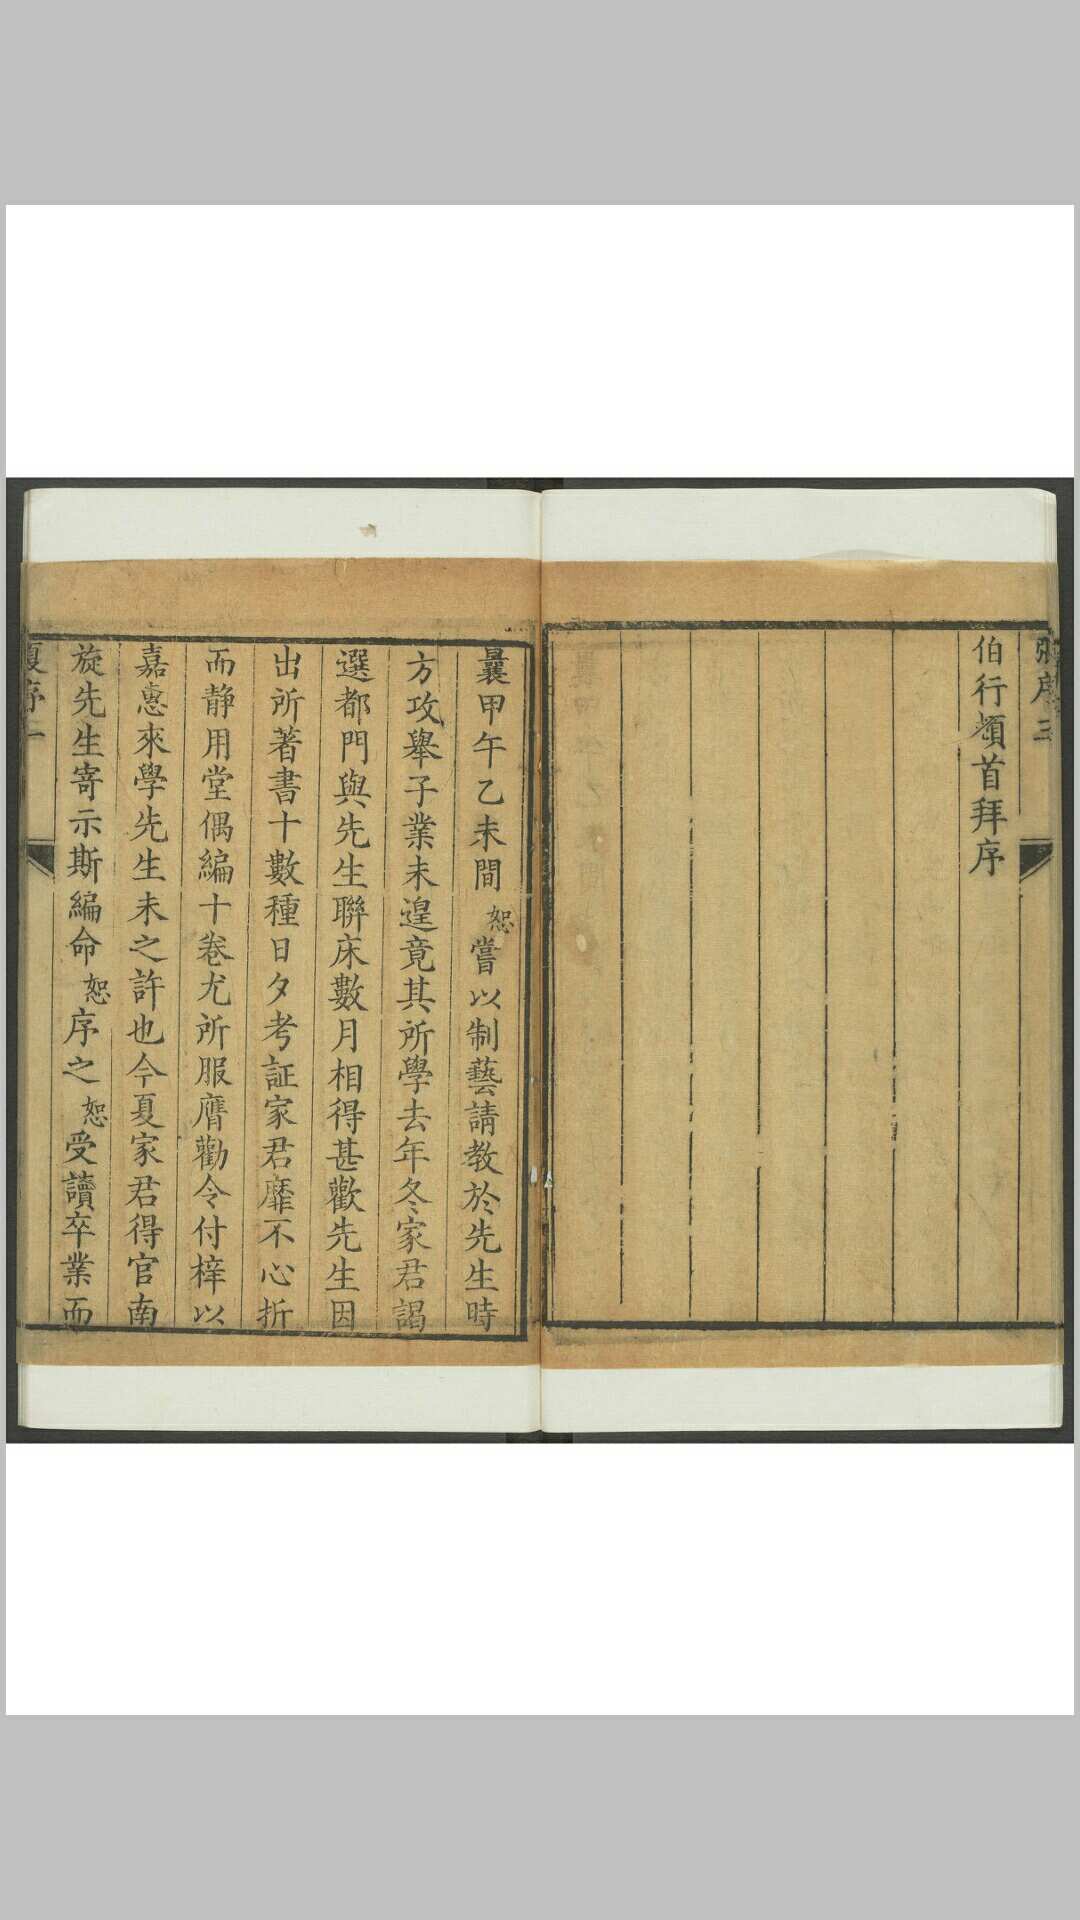 張序 三
伯行頓首拜序
曩甲午乙未間恕嘗以制藝請教於先生時
方攻舉子業未遑竟其所學去年冬家君謁
選都門與先生聯床數月相得甚歡先生因
出所著書十數種日夕考証家君靡不心折
而靜用堂偶編十卷尤所服膺勸令付梓以
嘉惠來學先生未之許也今夏家君得官南
旋先生寄示斯編命恕序之恕受讀卒業而
序一